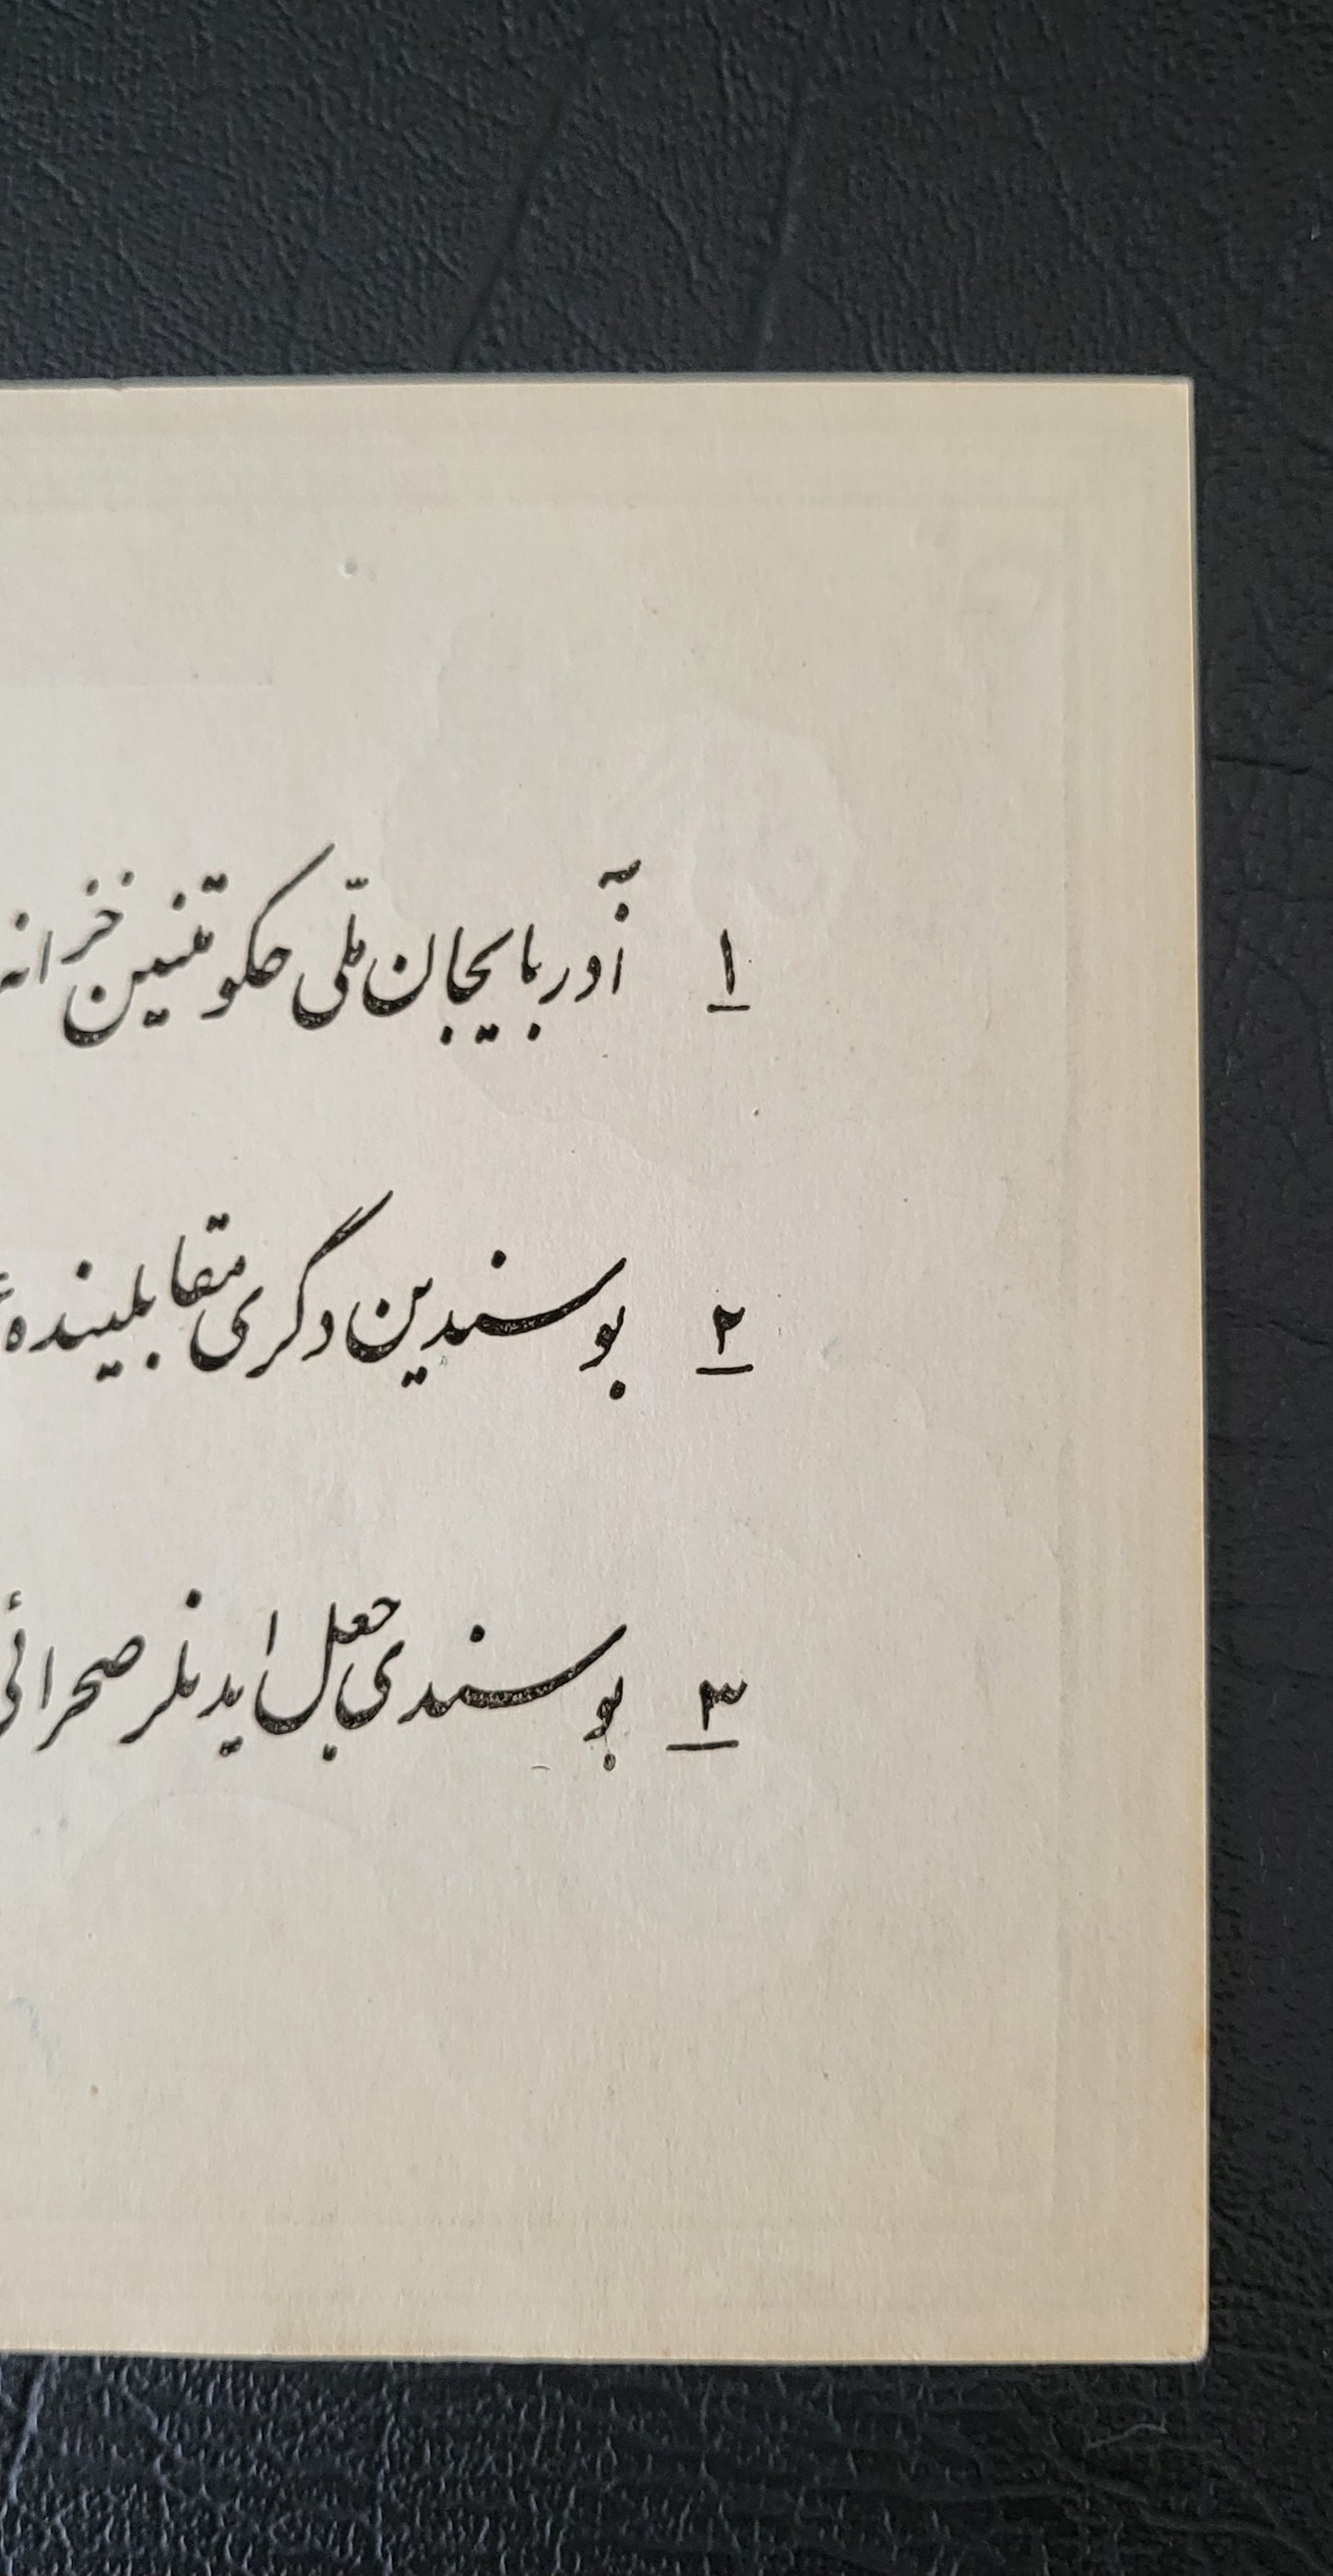 ۱ آذربایجان ملّی حکومتنین خزانه
۲ بو سندین دگری مقابلینده
۳ بو سندی جعل ایدنلر صحرائی